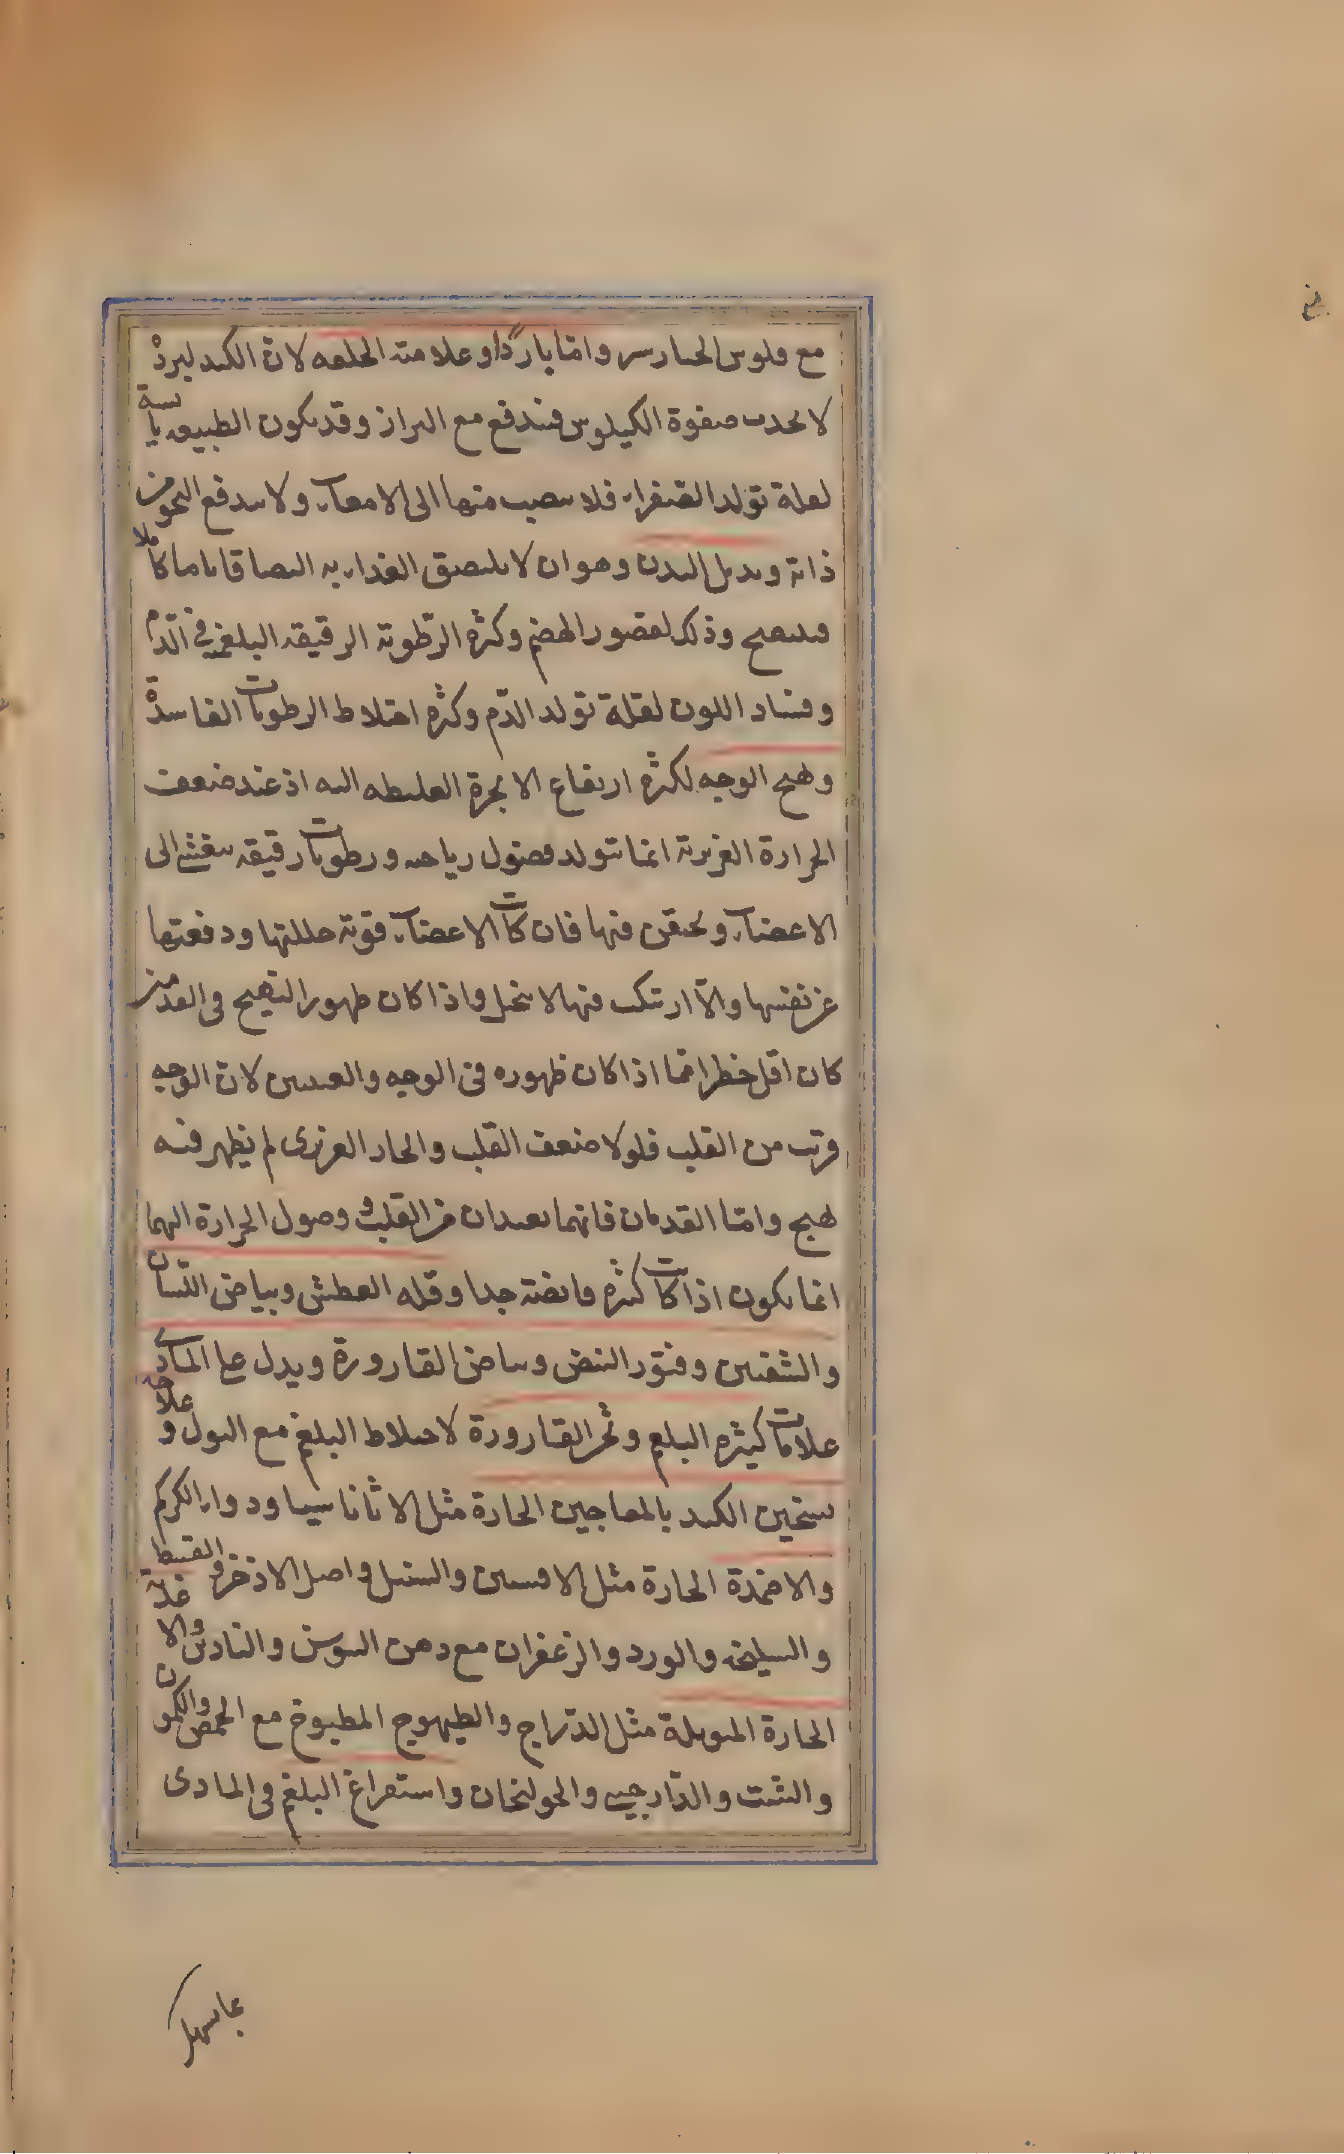 مع فلوس الخيار سنبر واما بارداً وعلامته الخلفه لان الكبد لبرده
لا يجذب صفوة الكيلوس فيندفع مع البراز وقد يكون الطبيعه يابسة
لقلة تولد الصفراء فلا ينصب منها الى الامعاء ولا يندفع البراز من
ذاته وترهل البدن وهو ان لا يلتصق الغذاء به التصاقا تاما كاملا
فيتهيج وذلك لقصور الهضم وكثرة الرطوبة الرقيقه البلغمية في الدم
وفساد اللون لقلة تولد الدم وكثرة اختلاط الرطوبات الفاسدة
وتهيج الوجه لكثرة ارتفاع الابخرة الغليظه اليه اذ عند ضعف
الحرارة الغريزية انما تتولد فضول رياحيه ورطوبات رقيقه يتفشى الى
الاعضاء وتحتقن فيها فان كانت الاعضاء قوية حللتها ودفعتها
عن نفسها والا ارتبكت فيها لا تتحلل واذا كان ظهور التهيج في القدمين
كان اقل خطرا مما اذا كان ظهوره في الوجه والعينين لان الوجه
قريب من القلب فلولا ضعف القلب والحار الغريزى لم يظهر فيه
تهيج واما القدمان فانهما بعيدان من القلب ووصول الحرارة اليهما
انما يكون اذا كانت كثيره فايضة جدا وقله العطش وبياض اللسان
والشفتين وفتور النبض وبياض القارورة ويدل على المادى
علامات كثره البلغم وثخن القارورة لاختلاط البلغم مع البول وعلاجه
تسخين الكبد بالمعاجين الحارة مثل الاثاناسيا ودواء الكركم
والاضمدة الحارة مثل الافسنتين والسنبل واصل الاذخر والقسط
والسليخه والورد والزعفران مع دهن السوسن والناردين والاغذية
الحارة المتوبلة مثل الدراج والطيهوج المطبوخ مع الحمص والكمون
والشبت والدارجيني والخولنجان واستفراغ البلغم في المادى
بما يسهل